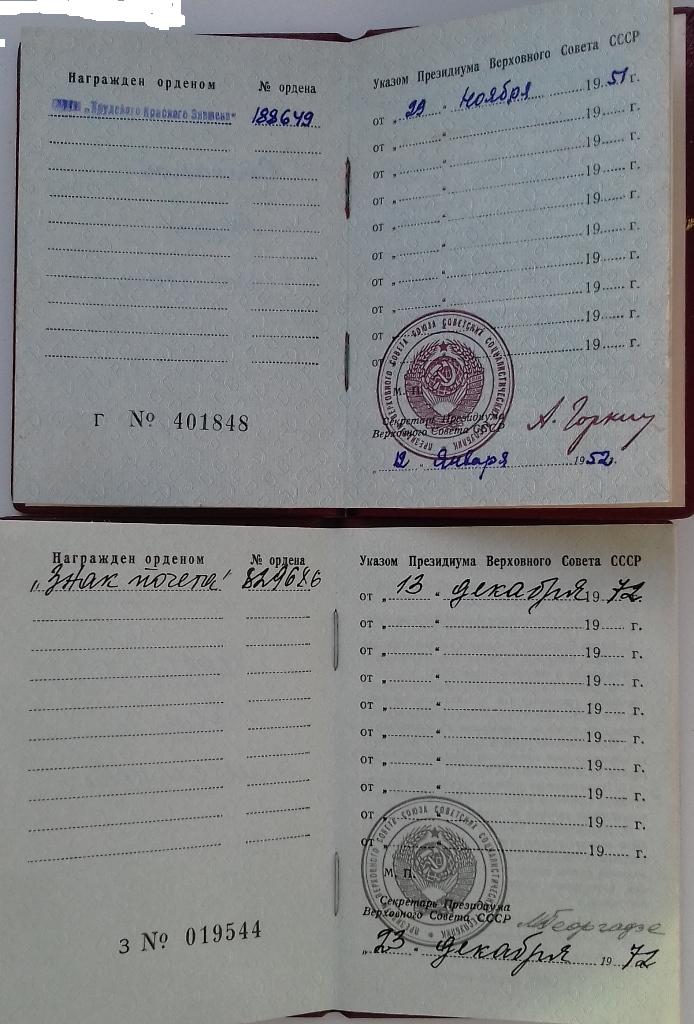 Награжден орденом № ордена
„Трудового Красного Знамени“ 188649
Г № 401848
Указом Президиума Верховного Совета СССР
от „ 29 “ Ноября 1951 г.
от „ “ 19 г.
от „ “ 19 г.
от „ “ 19 г.
от „ “ 19 г.
от „ “ 19 г.
от „ “ 19 г.
от „ “ 19 г.
от „ “ 19 г.
от 19 г.
М. П.
Секретарь Президиума
Верховного Совета СССР А. Горкин
„ 12 Января 1952 г.
ПРЕЗИДИУМ ВЕРХОВНОГО СОВЕТА СОЮЗА СОВЕТСКИХ СОЦИАЛИСТИЧЕСКИХ РЕСПУБЛИК
Награжден орденом № ордена
„Знак почета“ 829686
З № 019544
Указом Президиума Верховного Совета СССР
от „ 13 “ декабря 1972 г.
от „ “ 19 г.
от „ “ 19 г.
от „ “ 19 г.
от „ “ 19 г.
от „ “ 19 г.
от „ “ 19 г.
от „ “ 19 г.
от „ “ 19 г.
от „ “ 19 г.
М. П.
Секретарь Президиума
Верховного Совета СССР М Георгадзе
„ 23 “ декабря 1972
ПРЕЗИДИУМ ВЕРХОВНОГО СОВЕТА СОЮЗА СОВЕТСКИХ СОЦИАЛИСТИЧЕСКИХ РЕСПУБЛИК